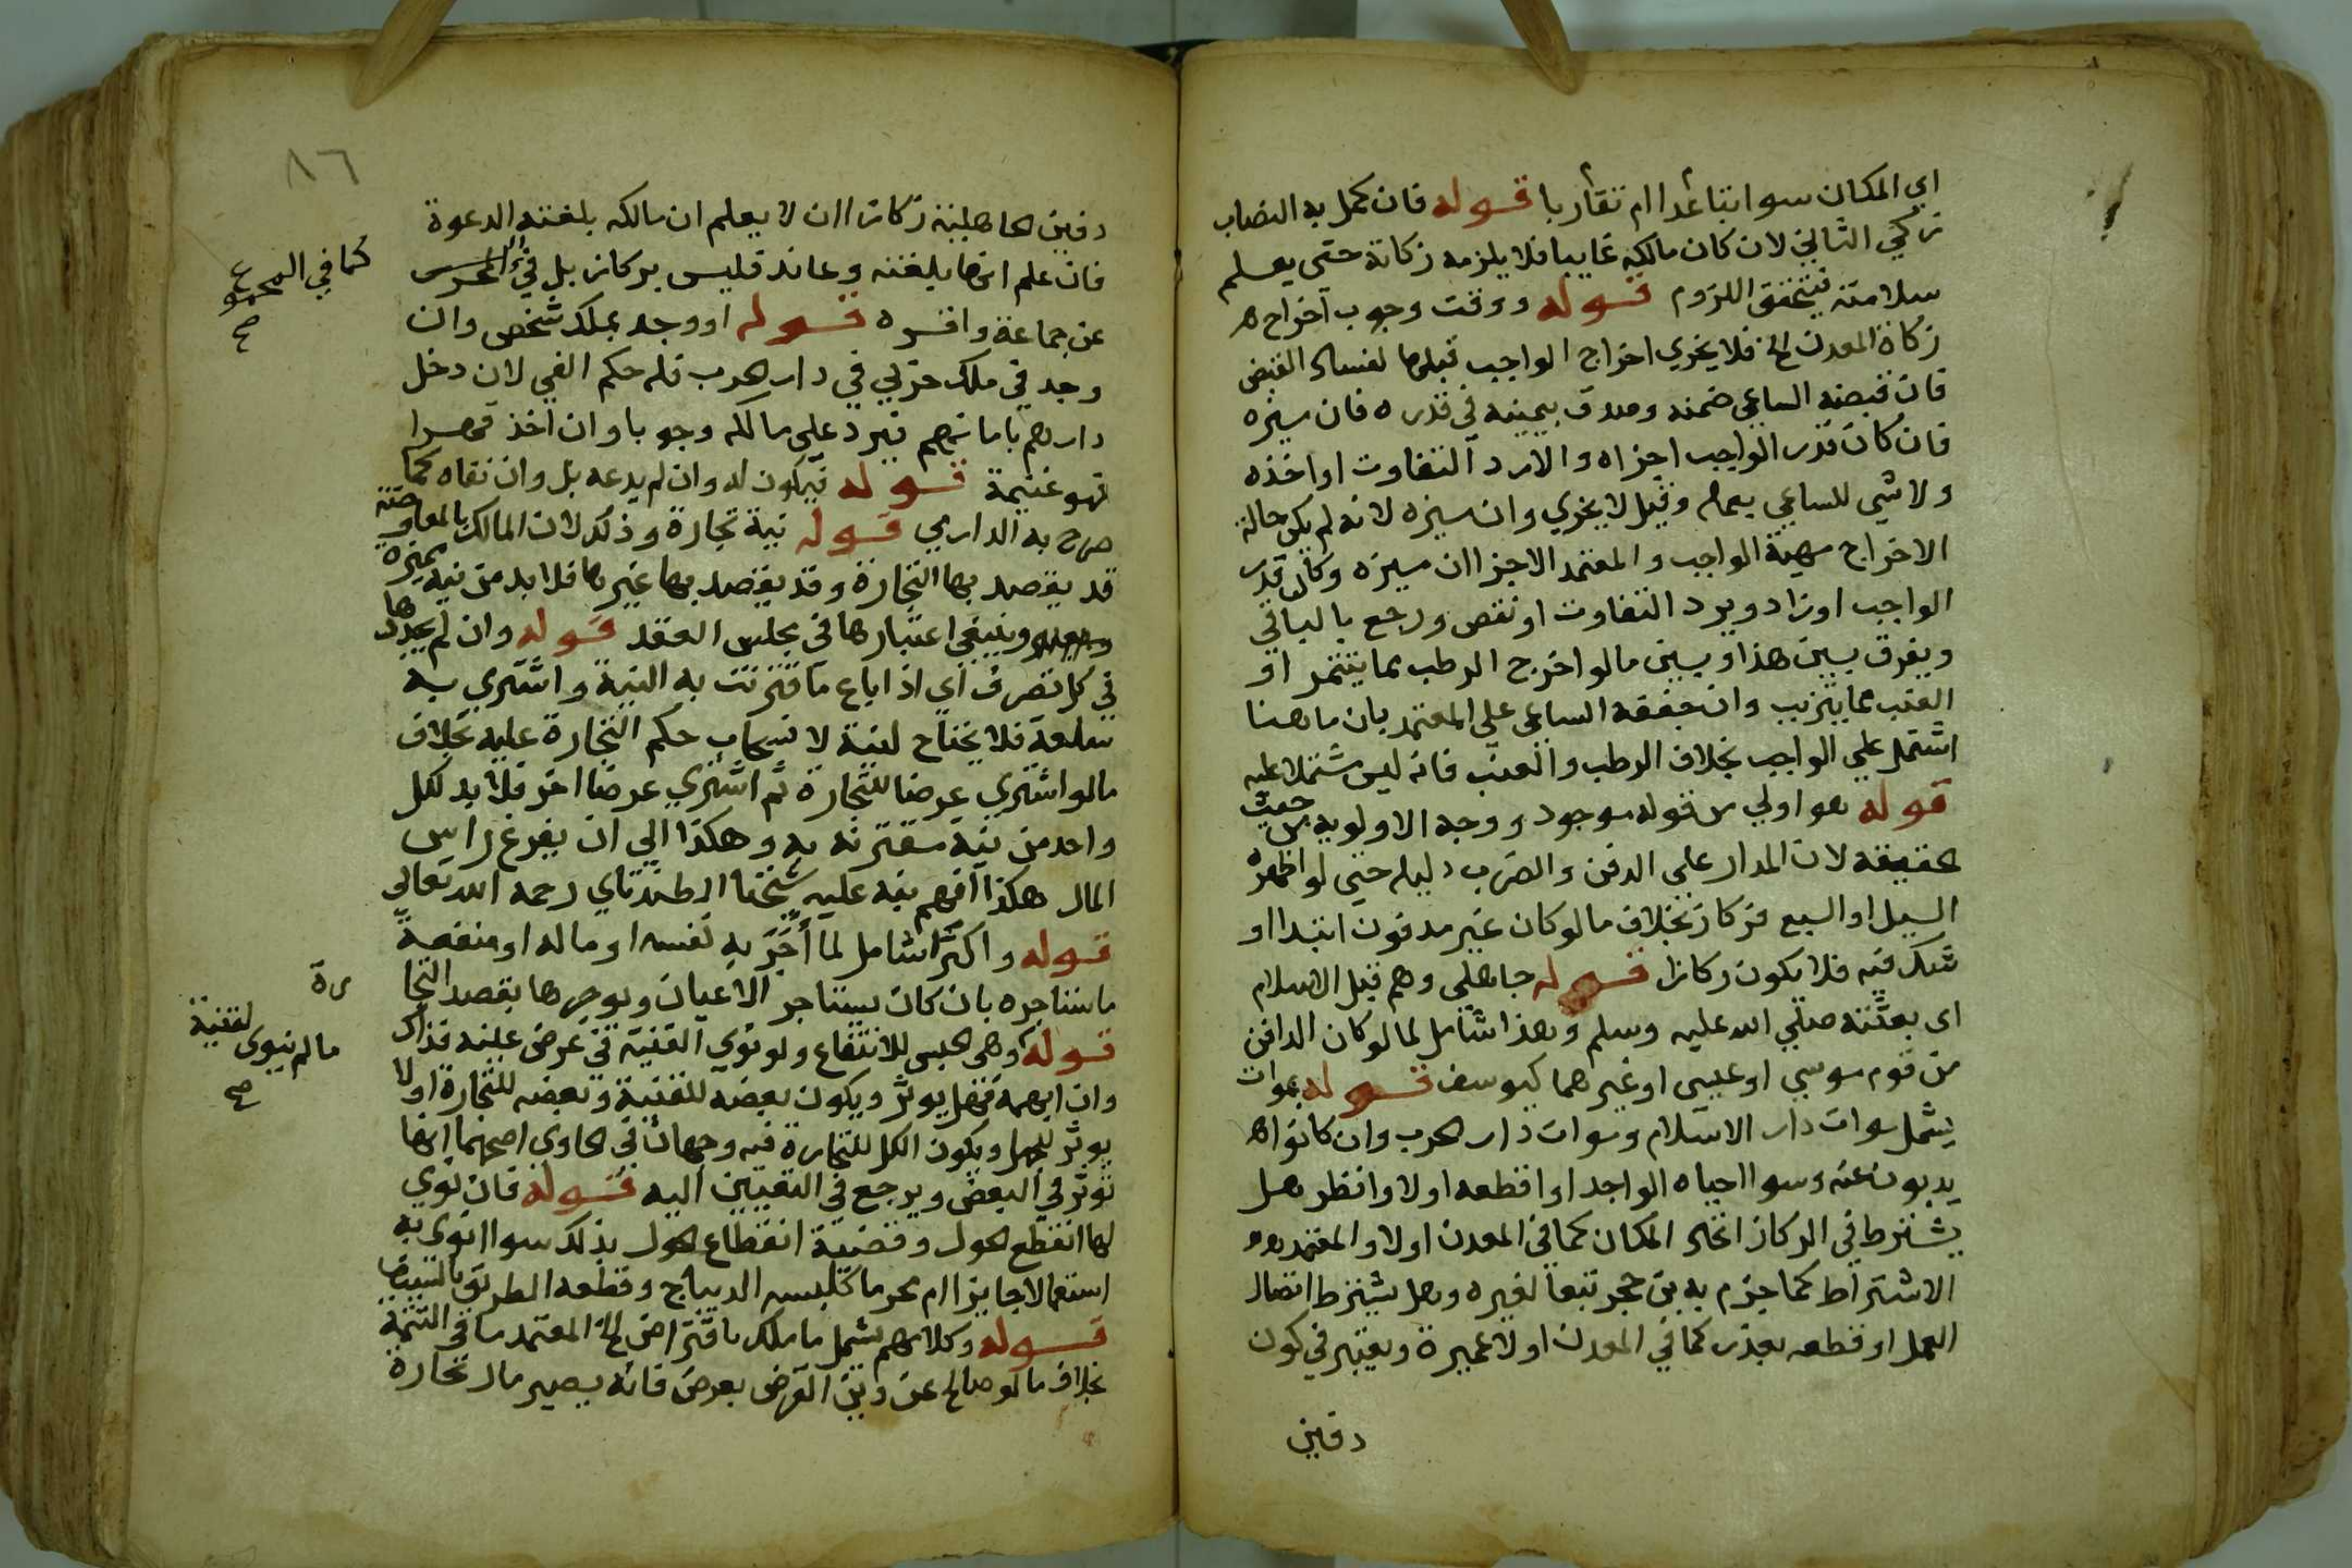 اي المكان سوا تباعدا ام تقاربا قوله فان كمل به النصاب
زكي الثاني لان كان مالكه غايبا فلا يلزمه زكاته حتى يعلم
سلامته فيتحقق اللزوم قوله ووقت وجوب اخراج
زكاة المعدن الخ فلا يجزي اخراج الواجب قبلها لفساد القبض
فان قبضه الساعي ضمنه وصدق بيمينه في قدره فان ميزه
فان كان قدر الواجب اجزاه والا رد التفاوت او اخذه
ولا شي للساعي بعمله وقيل لا يجزي وان ميزه لانه لم يكن حالة
الاخراج بهية الواجب والمعتمد الاجزا ان ميزه وكان قدر
الواجب او زاد ويرد التفاوت او نقص ورجع بالباقي
ويفرق بين هذا وبين ما لو اخرج الرطب مما يتتمر او
العنب مما يتزبب وان جففه الساعي على المعتمد بان ما هنا
اشتمل على الواجب بخلاف الرطب والعنب فانه ليس مشتملا عليه
قوله هو اولي من قوله موجود ووجه الاولوية من حيث
حقيقة لان المدار على الدفن والضرب دليله حتى لو اظهره
السيل او السبع فركاز بخلاف ما لو كان غير مدفون ابتدا او
شك فيه فلا يكون ركازا قوله جاهلي وهم قبل الاسلام
اى بعثته صلي الله عليه وسلم وهذا شامل لما لو كان الدافن
من قوم موسي او عيسى او غيرهما كيوسف قوله بموات
يشمل موات دار الاسلام وموات دار الحرب وان كانوا
يذبون عنه وسوا احياه الواجد او اقطعه اولا وانظر هل
يشترط في الركاز اتحاد المكان كما في المعدن اولا والمعتمد
الاشتراط كما جزم به بن حجر تبعا لغيره وهل يشترط اتصال
العمل او قطعه بعذر كما في المعدن اولا عميرة ويعتبر في كون
دفين
٨٦
دفين الجاهلية ركازا ان لا يعلم ان مالكه بلغته الدعوة
فان علم انها بلغته وعاند فليس بركاز بل في
كما في المجموع
صح
عن جماعة واقره قوله او وجد بملك شخص وان
وجد في ملك حربي في دار الحرب فله حكم الفي لان دخل
دارهم بامانهم فيرد على مالكه وجوبا وان اخذ قهرا
فهو غنيمة قوله فيكون له وان لم يدعه بل وان نفاه كما
صرح به الدارمي قوله نية تجارة وذلك لان المالك بالمعاوضة
قد يقصد بها التجارة وقد يقصد بها غيرها فلا بد من نية مميزه
وينبغي اعتبارها في مجلس العقد قوله وان لم يجددها
في كل تصرف اي اذا باع ما قترنت به النية واشتري به
سلعة فلا يحتاج لنية لا نسحاب حكم التجارة عليه بخلاف
مالو اشتري عرضا للتجارة ثم اشتري عرضا اخر فلا بد لكل
واحد من نية مقترنه به وهكذا الي ان يفرغ راس
المال هكذا افهم نبه عليه شيخنا الطندتاي رحمه الله تعالى
قوله واكترا شامل لما أَجّرَ به نفسه او ماله او منفعة
ما ستاجره بان كان يستاجر الاعيان ويوجرها بقصد التجا
رة
قوله وهى الحبس للانتفاع ولو نوي القنية في عرض عينه فذاك
ما لم ينوي لقنية
صح
وان ابهمه فهل يوثر ويكون بعضه للقنية وبعضه للتجارة او لا
يوثر ويكون الكل للتجارة فيه وجهان في الحاوى اصحهما انها
توثر في البعض ويرجع في التعيين اليه قوله فان نوي
لها انقطع الحول وقضية انقطاع الحول بذلك سوا انوي به
استعمالا جايزا ام محرما كلبسه الديباج وقطعه الطريق بالسيف
قوله وكلامهم يشمل ما ملك باقتراض الخ المعتمد ما في التتمة
بخلاف ما لو صالح عن دين القرض بعرض فانه يصير مال تجارة